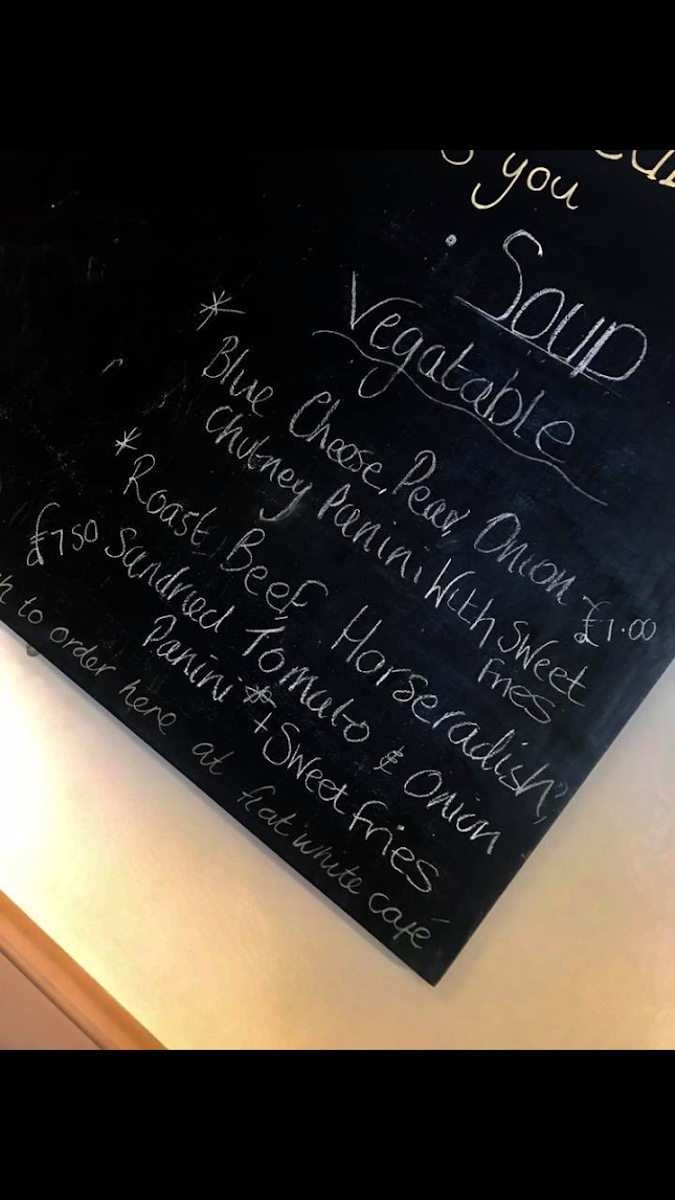 you
• Soup
Vegatable
* Blue Cheese, Pear, Onion - £7.00
Chutney Panini With Sweet
fries
* Roast Beef, Horseradish,
£750 Sundried Tomato & Onion
Panini * + Sweet fries
to order here at flat white café